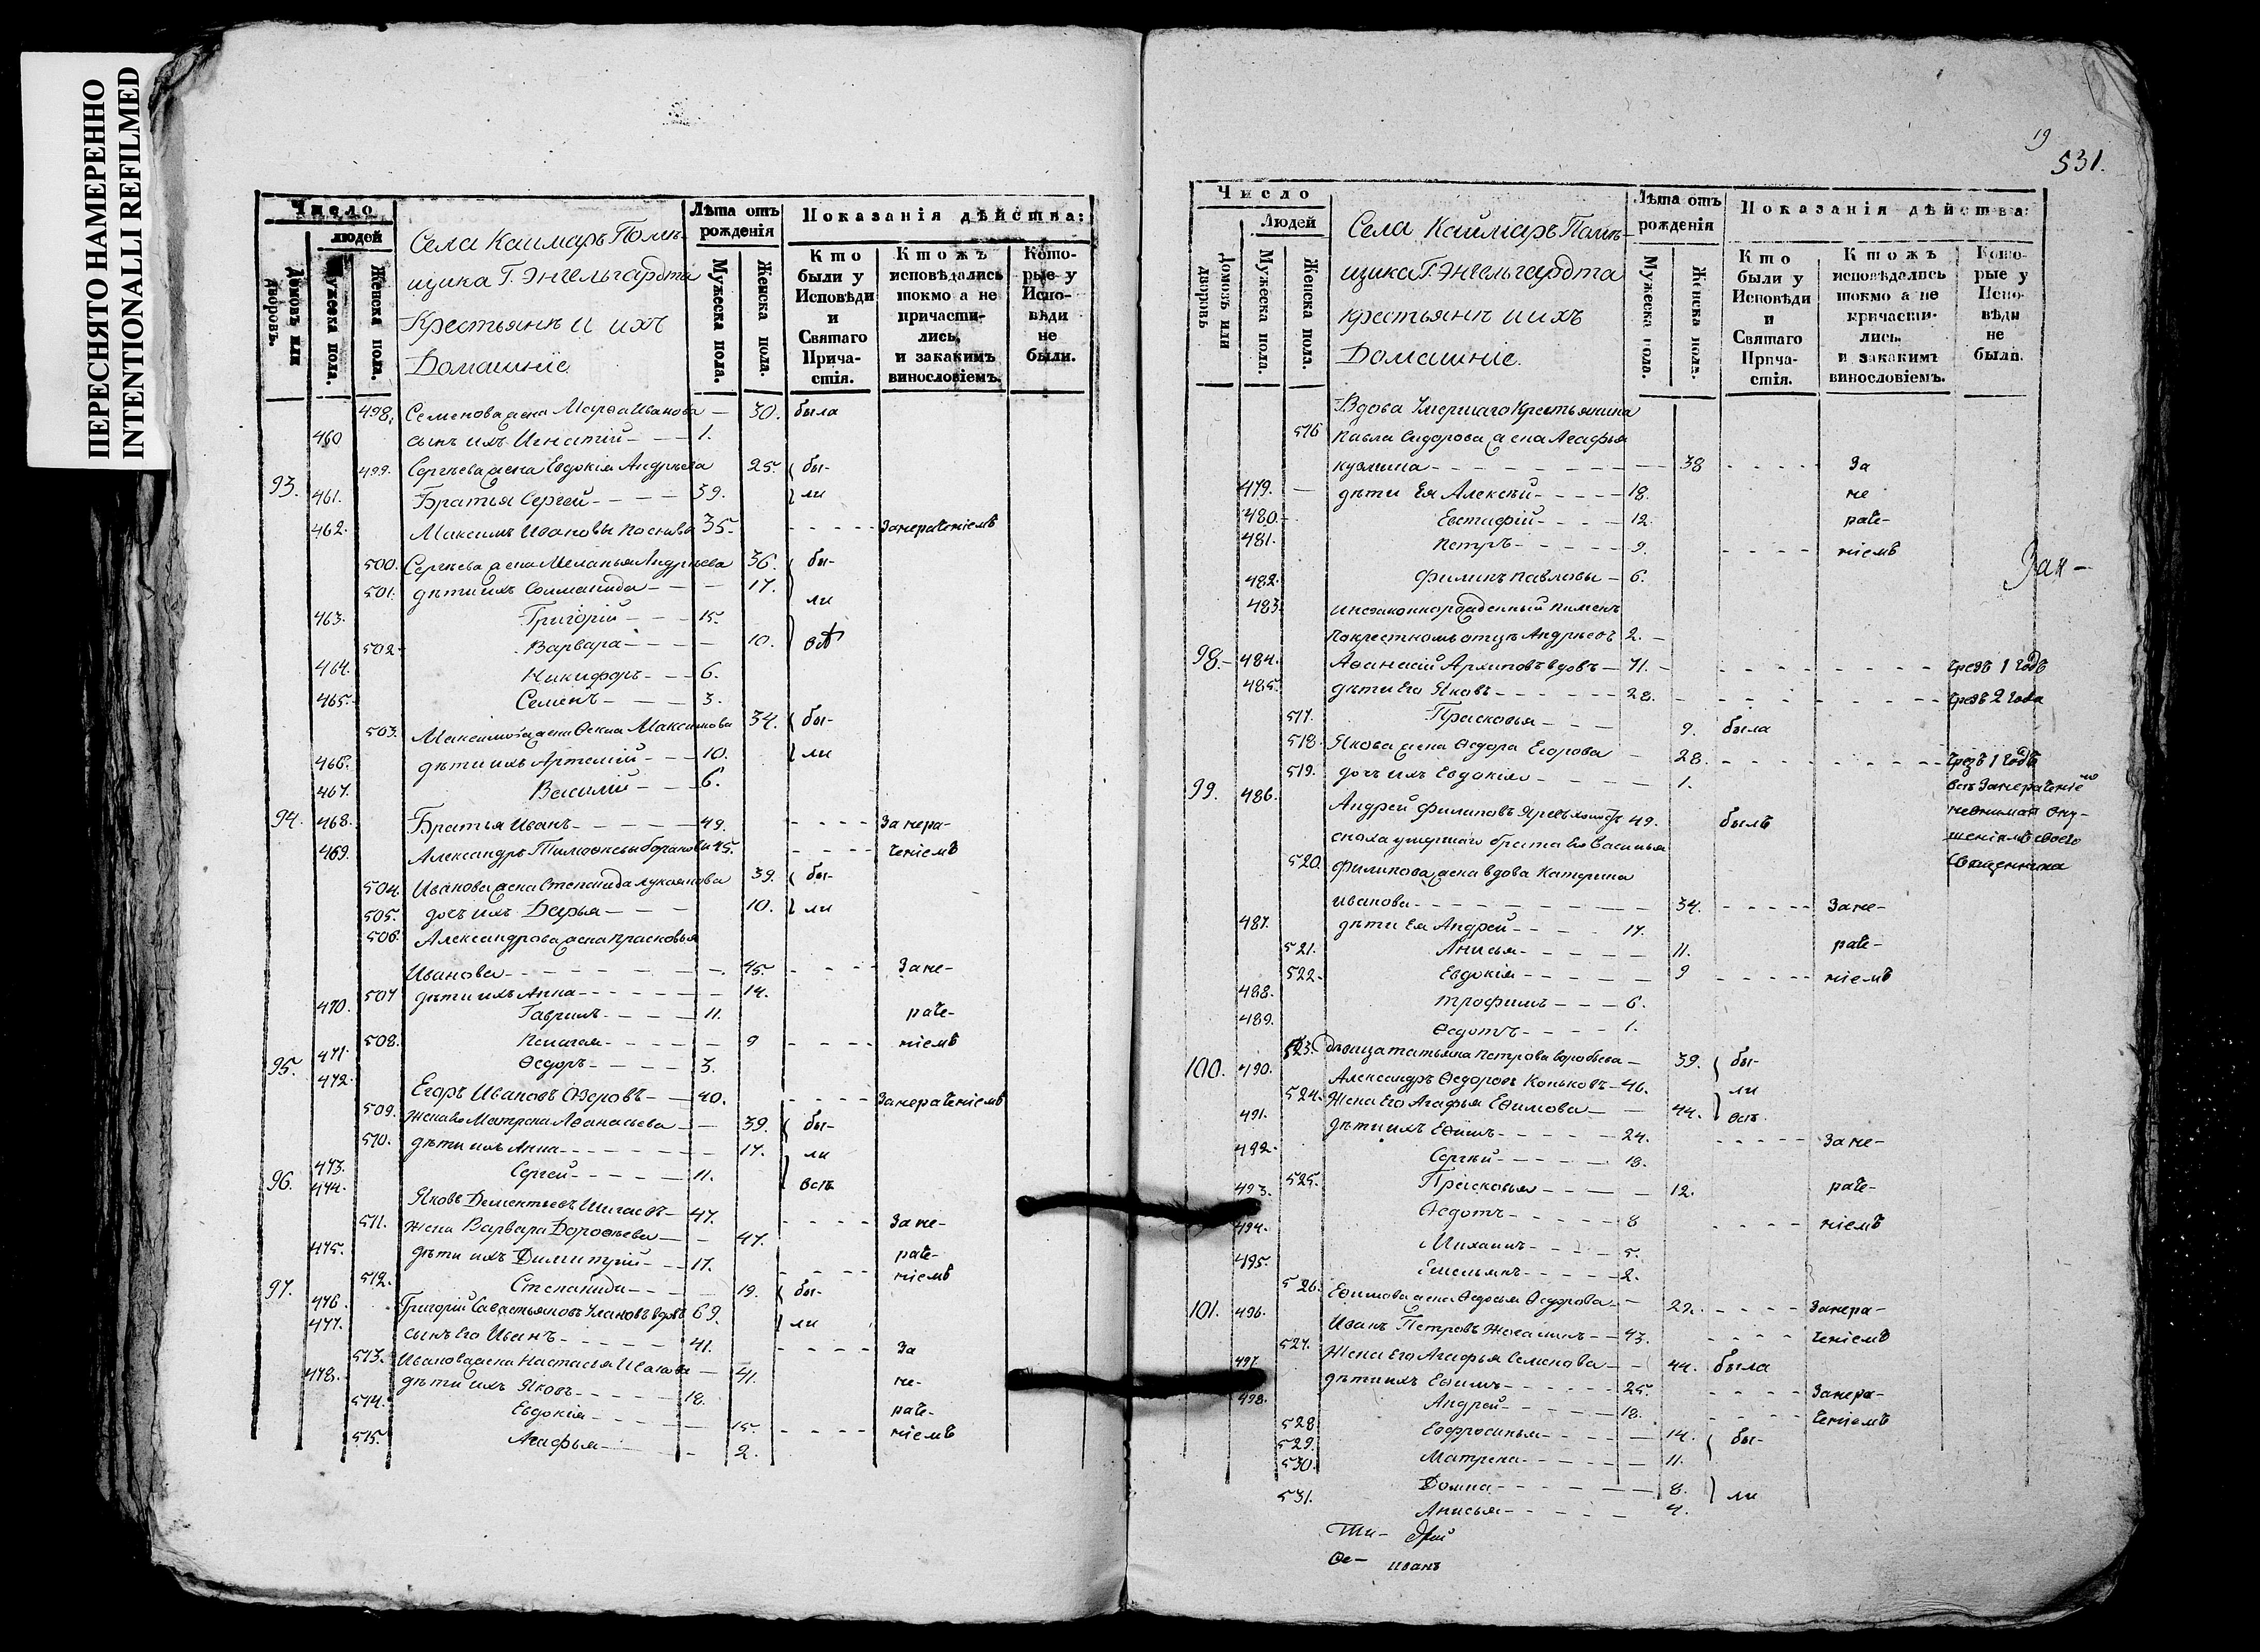 ПЕРЕСНЯТО НАМЕРЕННО
INTENTIONALLI REFILMED
Число
людей
Домовъ или дворовъ.
Мужеска пола.
Женска пола.
Села Каимаръ Помѣ-
щика Г. Энгельгардта
Крестьянѣ и ихъ
Домашніе
Лѣта отъ рожденія
Мужеска пола.
Женска пола.
Показанія дѣйства:
Кто были у Исповѣди и Святаго Причастія.
Ктожъ исповѣдались токмо а не причастились, и закакимъ винословіемъ.
Которые у Исповѣди не были.
498. Семенова жена Марѳа Иванова — 30. была
460 сынъ ихъ Игнатій - - - 1.
499. Сергѣева жена Евдокія Андрѣева 25. бы-
93. 461. Братья Сергей - - - - 39. ли
462. Максимъ Ивановы 35. - - - - Занераченіемъ
500. Сергѣева жена Меланья Андрѣева 36. бы-
501. дѣти ихъ Соломанида - - - 17.
ли
463. Григорій - - - 15.
502. Варвара - - - - 10.
464. Никифоръ - - - 6.
465. Семенъ - - - 3.
503. Максимова жена Ѳекла Максимова 34. бы-
466. дѣти ихъ Артемій - - - 10. ли
467. Василій - - - 6.
94. 468. Братья Иванъ - - - - - 49. - - - - Занера-
469. Александръ Тимоѳеевы 45. - - - - ченіемъ
504. Иванова жена Степанида Лукоянова 39. бы-
505. дочь ихъ Дарья - - - 10. ли
506. Александрова жена Прасковья
Иванова - - - - - - - 45. - - - - Зане-
507 дѣти ихъ Анна - - - - - 14.
470. Гаврилъ - - - - 11. раче-
508. Пелагея - - - - - 9 - - - - ніемъ
95. 471. Ѳедоръ - - - - 3.
472. Егоръ Ивановъ - - 40. - - - - Занераченіемъ
509. Жена Его Матрена Аѳанасьева - - 39. бы-
510. дѣти ихъ Анна - - - - - - 17. ли
473. Сергей - - - - 11. всѣ
96. 474. Яковъ Дементьевъ - 47. - - - - Зане-
511. Жена Варвара Дороѳеева - - 47.
475. дѣти ихъ Димитрій - - - 17. раче-
512. Степанида - - - - 19. бы- ніемъ
97. 476. Григорій Савастьяновъ Улановъ вдовъ 69. ли
477. сынъ Его Иванъ - - - - - 41. - - - - За
513. Иванова жена Настасья Исакова - 41.
478. дѣти ихъ Яковъ - - - - - 18. не-
514. Евдокія - - - - 15. раче-
515. Агафья - - - 2. ніемъ
19
531.
Число
Людей
Домовъ или дворовъ
Мужеска пола.
Женска пола.
Села Каймаръ Помѣ-
щика Г. Энгельгардта
крестьянѣ и ихъ
Домашніе.
Лѣта отъ рожденія
Мужеска пола.
Женска пола.
Показанія дѣйства
Кто были у Исповѣди и Святаго Причастія.
Ктожъ исповѣдались токмо а не причастились. и закакимъ винословіемъ.
Которые у Исповѣди не были.
Вдова Умершаго Крестьянина
516 Павла Сидорова жена Агафья
кузмина - - - - - - - - - 38 - - - - - За
479. — дѣти Ея Алексѣй - - - - - 18. не
480. Евстифій - - - - 12. раче-
481. Петръ - - - - - 9. - - - - ніемъ
482. Филипъ Павловы - 6.
483. и незаконнорожденный Пименъ
по крестномъ отцѣ Андрѣевъ 2.
98. 484. Аѳанасій Архиповъ вдовъ - 71. - - - - - - - чрезъ 1 годъ
485. дѣти Его Яковъ - - - - - - 28. - - - - - - - чрезъ 2 года
517. Прасковья - - - 9. была
518. Якова жена Ѳедора Егорова - 28. - - - - - - - чрезъ 1 годъ
519. дочь ихъ Евдокія - - - - 1. всѣ Занераченіе
99. 486. Андрей Филиповъ 49. былъ
сноха умершаго брата Его Василья шеніямъ своего
520. Филипова жена вдова Катерина Священника
иванова - - - - - - - - 34. - - - - - Зане-
487. дѣти Ея Андрей - - - - 17.
521. Анисья - - - - - 11. раче-
522. Евдокія - - - - - 9 - - - - ніемъ
488. Трофимъ - - - 6.
489. Ѳедотъ - - - - 1.
523. дѣвица татьяна Петрова воробьева - 39. бы-
100. 490. Александръ Ѳедоровъ Коньковъ - 46. ли
524. Жена Его Агафья Ефимова - - 44. всѣ
491. дѣти ихъ Ефимъ - - - - - 24. - - - - - Зане-
492. Сергѣй - - - - - 18.
525. Прасковья - - - - 12. раче-
493. Ѳедотъ - - - - - 8 - - - - ніемъ
494. Михаилъ - - - - 5.
495. Емельянъ - - - - - 2.
526. Ефимова жена Ѳедосья Ѳедорова - - 22. - - - - Занера-
101. 496. Иванъ Петровъ - - 43. - - - - ченіемъ
527. Жена Его Агафья Семенова - - 44. была
497. дѣти ихъ Ефимъ - - - - - - 25. - - - - Занера-
498. Андрей - - - - - 18. - - - - ченіемъ
528 Евфросинья - - - - - 14. бы-
529. Матрена - - - - - 11.
530. Домна - - - - - - 8. ли
531. Анисья - - - - - 4.
Ѳе- иванъ